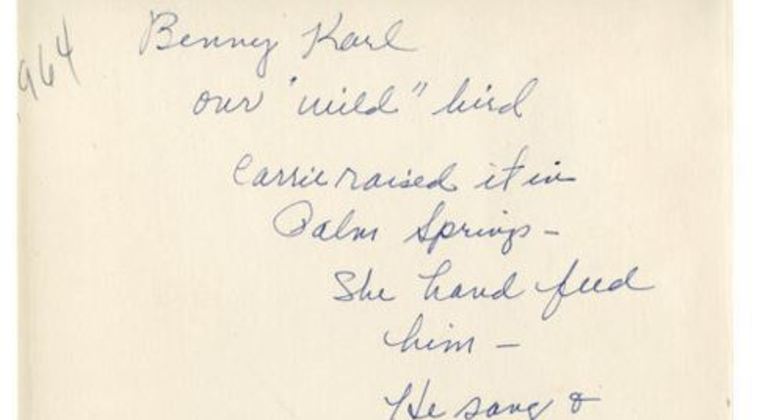 1964
Benny Karl
our "wild" bird
Carrie raised it in
Palm Springs -
She hand feed
him -
He sang &